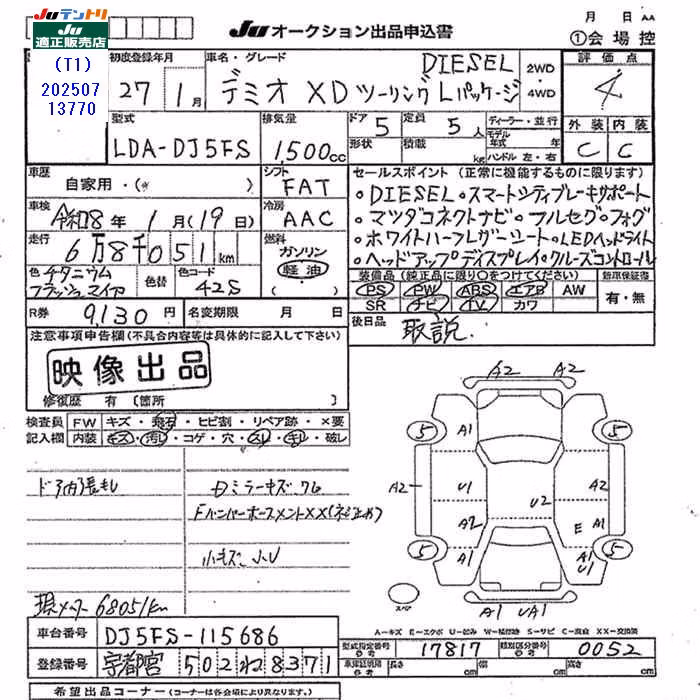 Juテントリ
Ju適正販売店
(T1)
202507
13770
Juオークション出品申込書
月 日 AA
①会場控
初度登録年月
27 1月
車名・グレード
DIESEL
デミオ XD ツーリング Lパッケージ
2WD
・
4WD
評価点
4
外装 内装
C C
型式
LDA-DJ5FS
排気量
1,500cc
ドア 5 定員 5人
形状 積載 kg
ディーラー・並行
モデル年式 年
ハンドル 左・右
車歴
自家用・( )
シフト
FAT
車検
令和8年 1月(19日)
冷房
AAC
走行
6万8千051km
燃料
ガソリン
軽油
色 チタニウム
フラッシュマイカ
色替
色コード
42S
セールスポイント (正常に機能するものに限ります)
・DIESEL・スマートシティブレーキサポート
・マツダコネクトナビ・フルセグ・フォグ
・ホワイトハーフレザーシート・LEDヘッドライト
・ヘッドアップディスプレイ・クルーズコントロール
装備品 (純正品に限り○をつけてください)
PS PW ABS エアB AW
SR ナビ TV カワ
新車保証書
有・無
R券 9,130円
名変期限 月 日
後日品
取説
注意事項申告欄(不具合内容等は具体的に記入して下さい)
映像出品
修復歴 有 (箇所 )
検査員記入欄
FW キズ・飛石・ヒビ割・リペア跡・×要
内装 キズ・汚れ・コゲ・穴・スレ・キレ・破レ
ド
FバンパーホースメントXX(ネジ止め)
小キズ、小U
現メーター 68051km
A2 A2
5 A1 5
A2 U1 A2
U2
A2 E A1
5 A1 A1 U1 5
スペア
A1 UA1
A―キズ E―エクボ U―凹み W―補修跡 S―サビ C―腐食 XX―交換済
車台番号 DJ5FS-115686
登録番号 宇都宮 502 ね 8371
型式指定番号 17817
類別区分番号 0052
車庫証明用参考 長さ cm 幅 cm 高さ cm
希望出品コーナー (コーナーは各会場により異なります。)